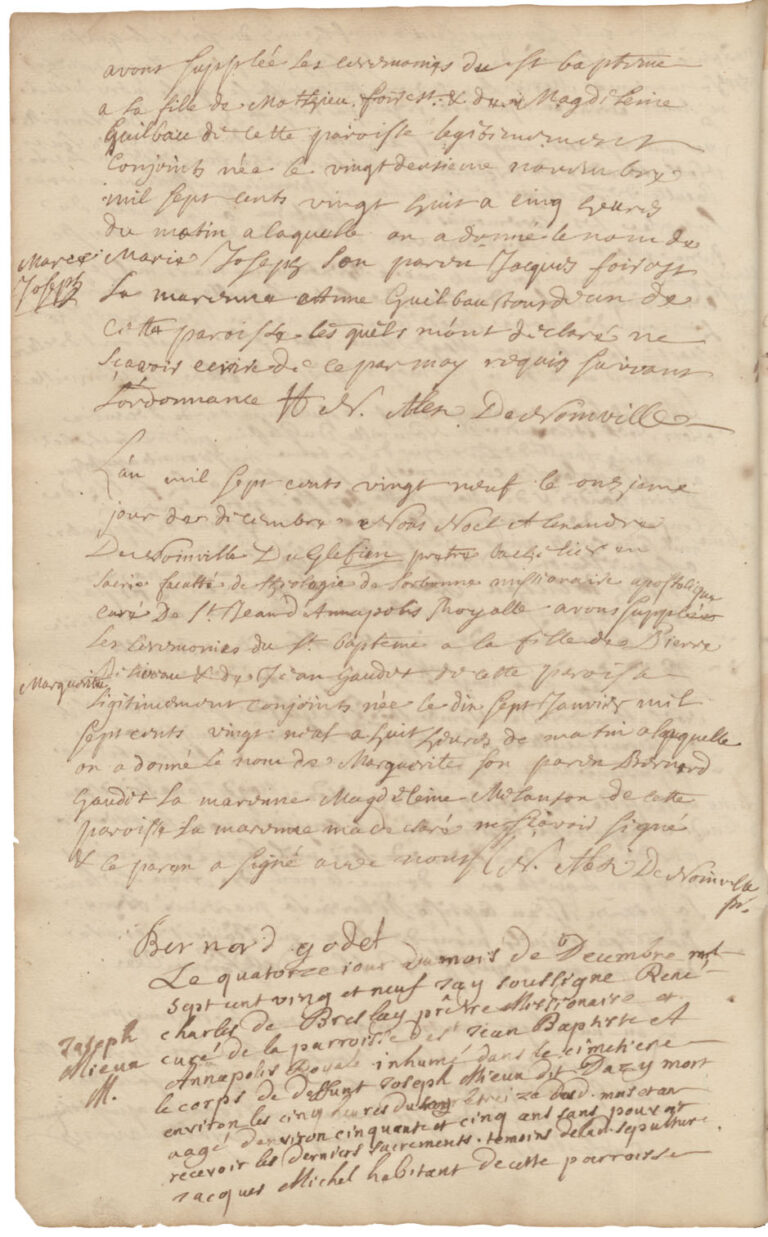 avons supplée les ceremonies du st baptême
a la fille de Mathieu foirest & de Magdeleine
Guilbau de cette paroisse legitimement
Conjoints née le vingt deusieme novembre
mil sept cents vingt huit a cinq heures
du matin a laquelle on a donné le nom de
Marie Joseph
Marie Joseph son parein Jacques foirest
La marenne Anne Guilbau de
cette paroisse lesquels m'ont declaré ne
sçavoir ecrire de ce par moy requis suivant
L'ordonnance N. Alex. De Noinville
L'an mil sept cents vingt neuf le onsieme
jour de decembre Nous Noel Alexandre
De Noinville Du Glefien pretre bachelier en
sacrée faculté de theologie de Sorbonne missionaire apostolique
curé De St. Jean d'Annapolis Royalle avons supplées
Les ceremonies du St. baptême a la fille de Pierre
Marguerite
& de Jean Gaudet de cette paroisse
Legitimement conjoints née le dix sept Janvier mil
sept cents vingt neuf a huit heures de matin a laquelle
on a donné le nom de Marguerite son parein Bernard
Gaudet La marenne Magdeleine Melanson de cette
paroisse La marenne m'a declaré ne sçavoir signé
& le parein a signé avec nous N. Alex. De Noinville
ptr.
Bernard godet
Le quatorze iour du mois de Decembre mil
sept cent ving et neuf Jay soussigne René
charles de Breslay prêtre Missionaire et
Joseph
Mieux
M.
curé de la parroisse de st Jean Baptiste A
Annapolis Royale inhumé dans le cimetiere
le corps de deffunt Joseph Mieux dit Dazy mort
environ les cinq heures du treize dud. mois et an
aagé d'environ cinquante et cinq ans sans pouvoir
recevoir les derniers sacrements. temoins de lad. sepulture
Jacques Michel habitant de cette parroisse